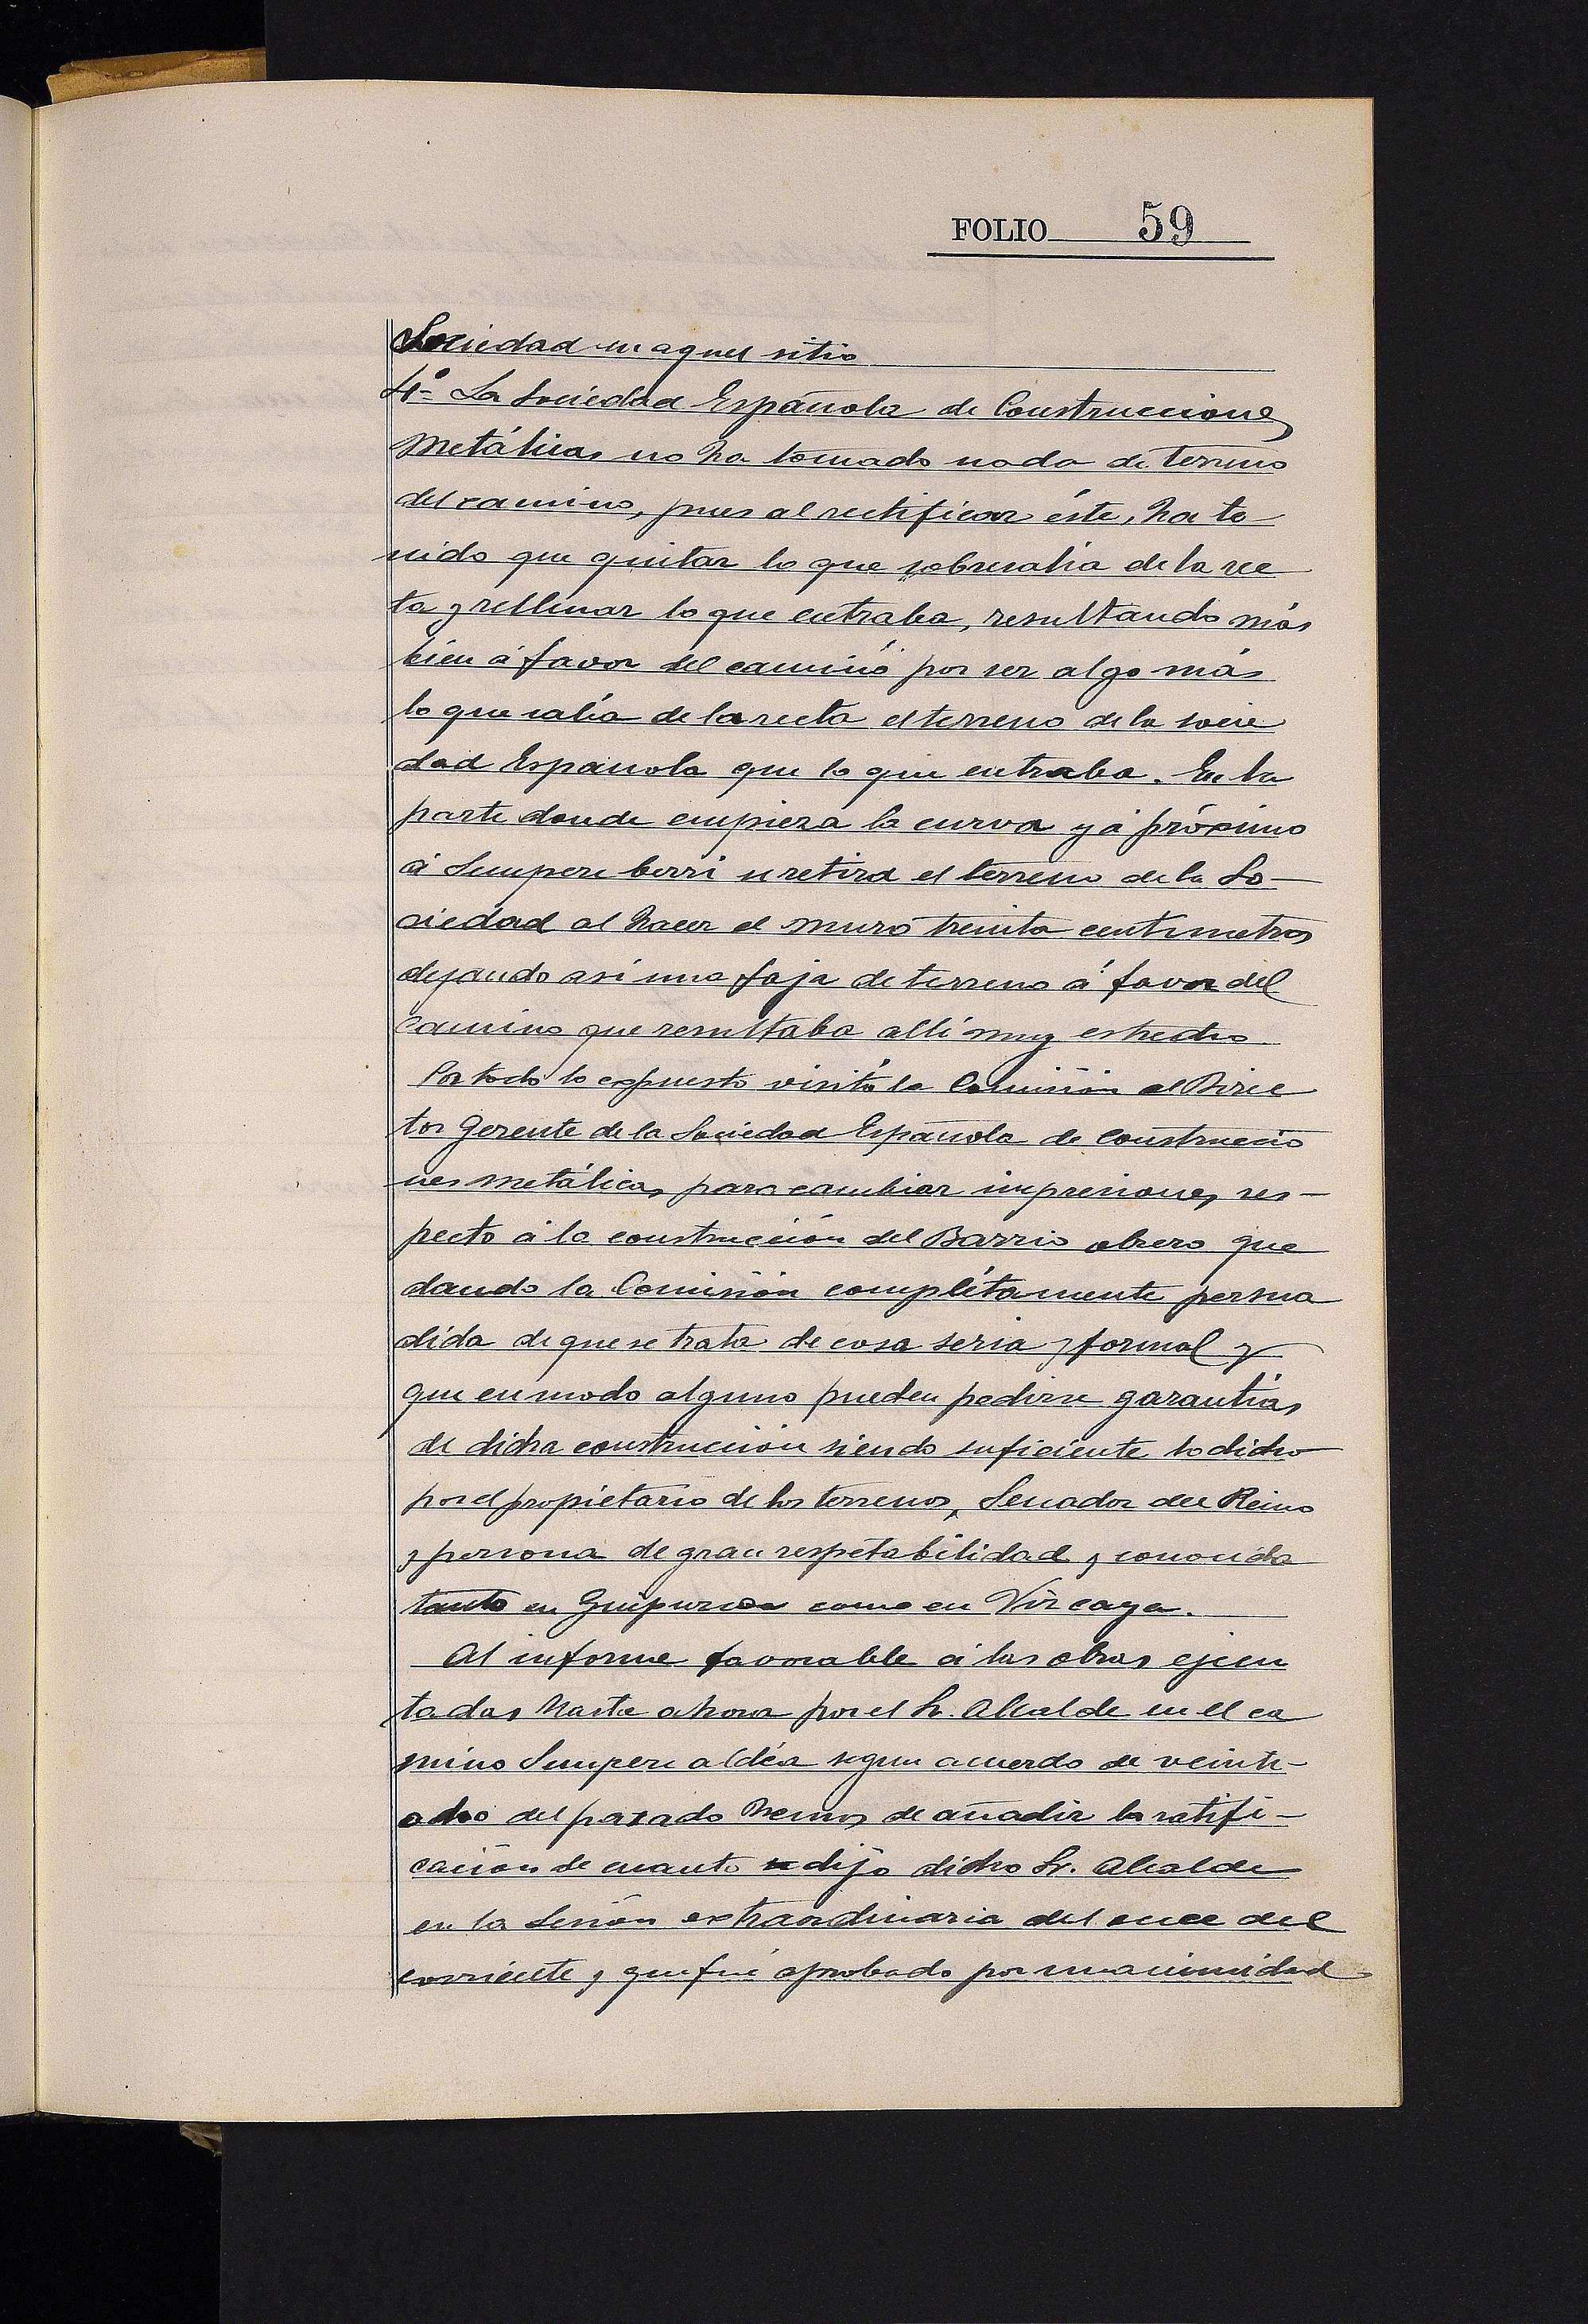 FOLIO 59
Sociedad en aquel sitio
4º La Sociedad Española de Construcciones
Metálicas no ha tomado nada de terreno
del camino, pues al rectificar éste, ha te-
nido que quitar lo que sobresalia de la rec
ta y rellenar lo que entraba, resultando más
bien á favor del camino por ser algo más
lo que salía de la recta el terreno de la socie
dad Española que lo que entraba. En la
parte donde empieza la curva yá próximo
á Sempere berri se retira el terreno de la So-
ciedad al hacer el muro treinta centimetros
dejando asi una faja de terreno á favor del
camino que resultaba allí muy estrecho
Por todo lo expuesto visitó la Comisión al Direc
tor Gerente de la Sociedad Española de construccio
nes metálicas para cambiar impresiones, res-
pecto á la construcción del Barrio obrero que
dando la Comisión complétamente persua
dida de que se trata de cosa seria y formal y
que en modo alguno pueden pedirse garantías
de dicha construcción siendo suficiente lo dicho
por el propietario de los terrenos, Senador del Reino
y persona de gran respetabilidad y conocida
tanto en Guipuzcoa como en Vizcaya.
Al informe favorable á las obras ejecu
tadas hasta ahora por el Sr. Alcalde en el ca
mino Sempere aldéa segun acuerdo de veinti-
ocho del pasado hemos de añadir la ratifi-
cación de cuanto dijo dicho Sr. Alcalde
en la Sesión extraordinaria del once del
corriente y que fué aprobado por unanimidad